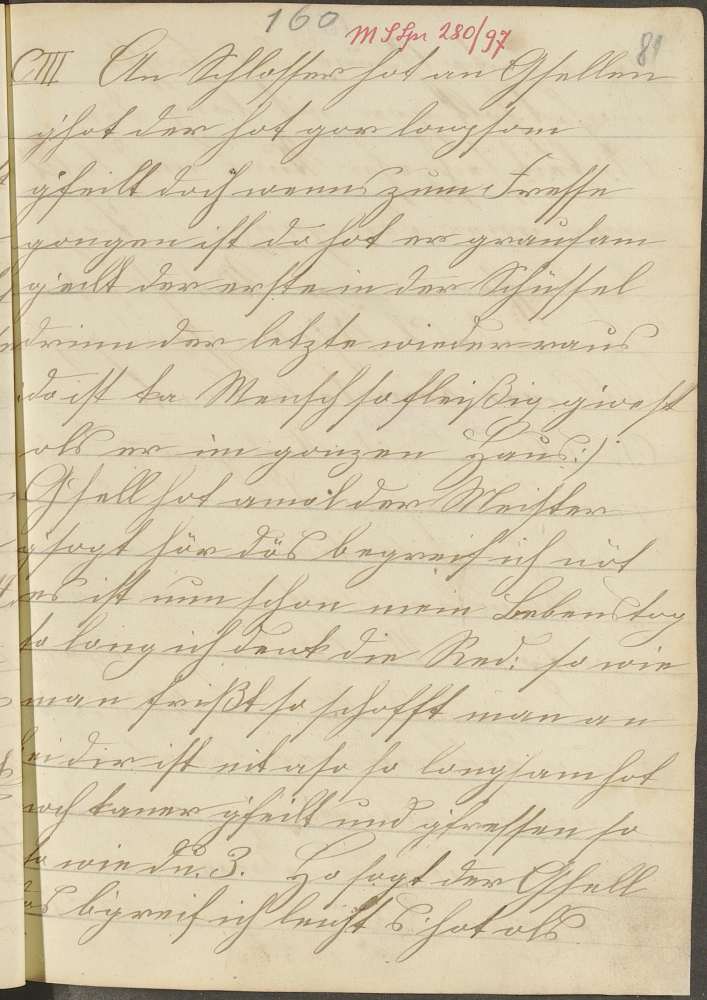 160
MSSpr 280/97
81
CIII An Schlosser hot an Gsellen
g'hot der hot gor longsom
gfeilt doch wenns zum Fresse
gongen ist do hot er grausam
geilt der erste in der Schüssel
drinn der letzte wieder raus
do ist ka Mensch so fleißig gwest
ols er im gonzen Haus:/
Gsell hot amol der Meister
gsogt hör dös begreif ich nöt
es ist nun schon mein Lebenstog
so long ich denk die Red: so wie
man frißt so schofft man a n
bei dir ist nit aso so longsam hot
noch kaner gfeilt und gfressen so
so wie du. 3. Ho sogt der Gsell
das bgreif ich leicht s'hot ols